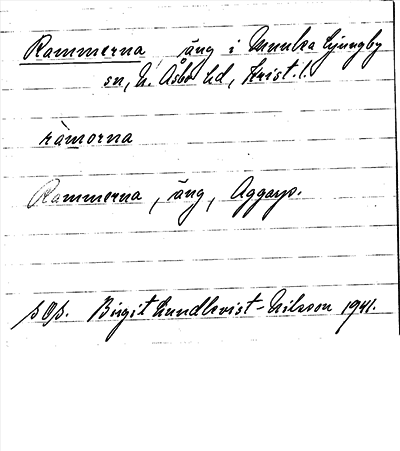 Rammerna, äng i Munka Ljungby
sn, N. Åsbo hd, Krist. l.
ràmorna
Rammerna, äng, Aggarp.
Birgit Lundkvist-Nilsson 1941.